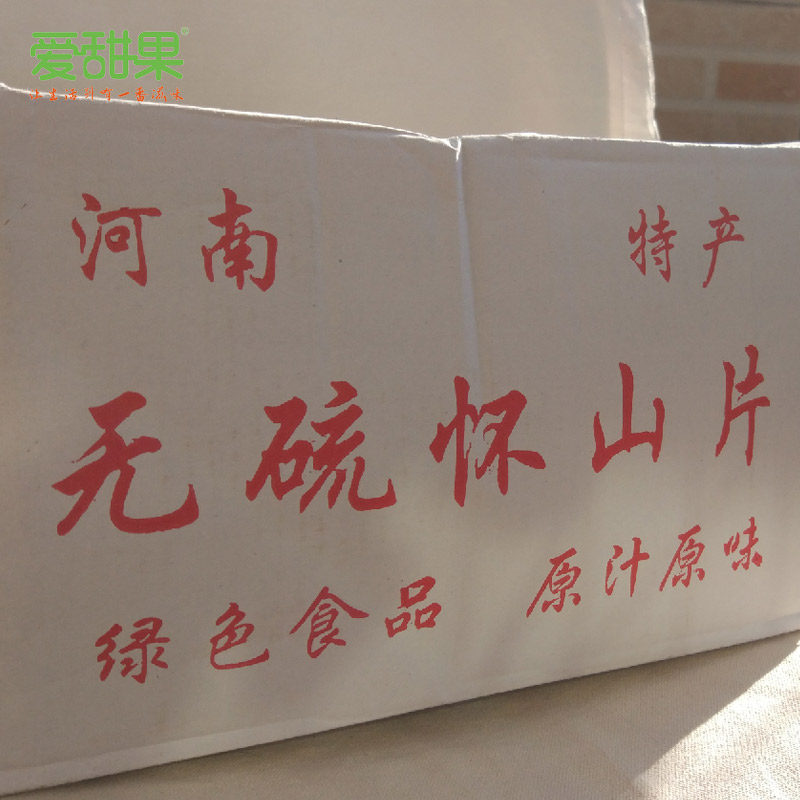 爱甜果®
河南 特产
无硫怀山片
绿色食品 原汁原味